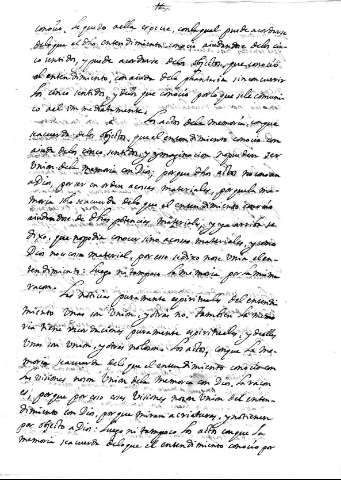 conocio. le quedo en ella especie, con la qual puede acordarse
de lo que el dho. entendimiento conocio ayudandose de los cin-
co sentidos, y puede acordarse de los objetos, que conocio
el entendimiento, con ayuda de la phantasia sin concurrir
los cinco sentidos, y de los que conocio por lo que se le comuni-
co a el inmediatamente.
Los actos de la memoria, con que
se acuerda de los objetos, que el entendimiento conocio con
ayuda de los cinco sentidos, y ymaginacion no pueden ser
Union de la memoria con Dios; porque dhos. actos no
a Dios, por ser en orden a cosas materiales, porque la me-
moria solo se acuerda de lo que el entendimiento
ayudandose de dhas potencias materiales, y ya arriba se
dixo, que no podia conocer sino a cosas materiales, y
Dios no es cosa material, por esso se dixo no se unia el en-
tendimiento: luego ni tampoco la memoria por la misma
racon.
Las noticias puramente espirituales del entendi-
miento unas son Union, y otras no. Tambien la memo-
ria tiene puramente espirituales, y dellas
unas son union, y otras no lo son. Los actos, con que la me-
moria se acuerda de lo que el entendimiento conocio con
las visiones no son Union de la memoria con Dios, la racon
es, porque por esso essas visiones no son Union del enten-
dimiento con Dios, porque miran a criaturas, y no tienen
por objecto a Dios: luego ni tampoco los actos con que la
memoria se acuerda de lo que el entendimiento conocio por